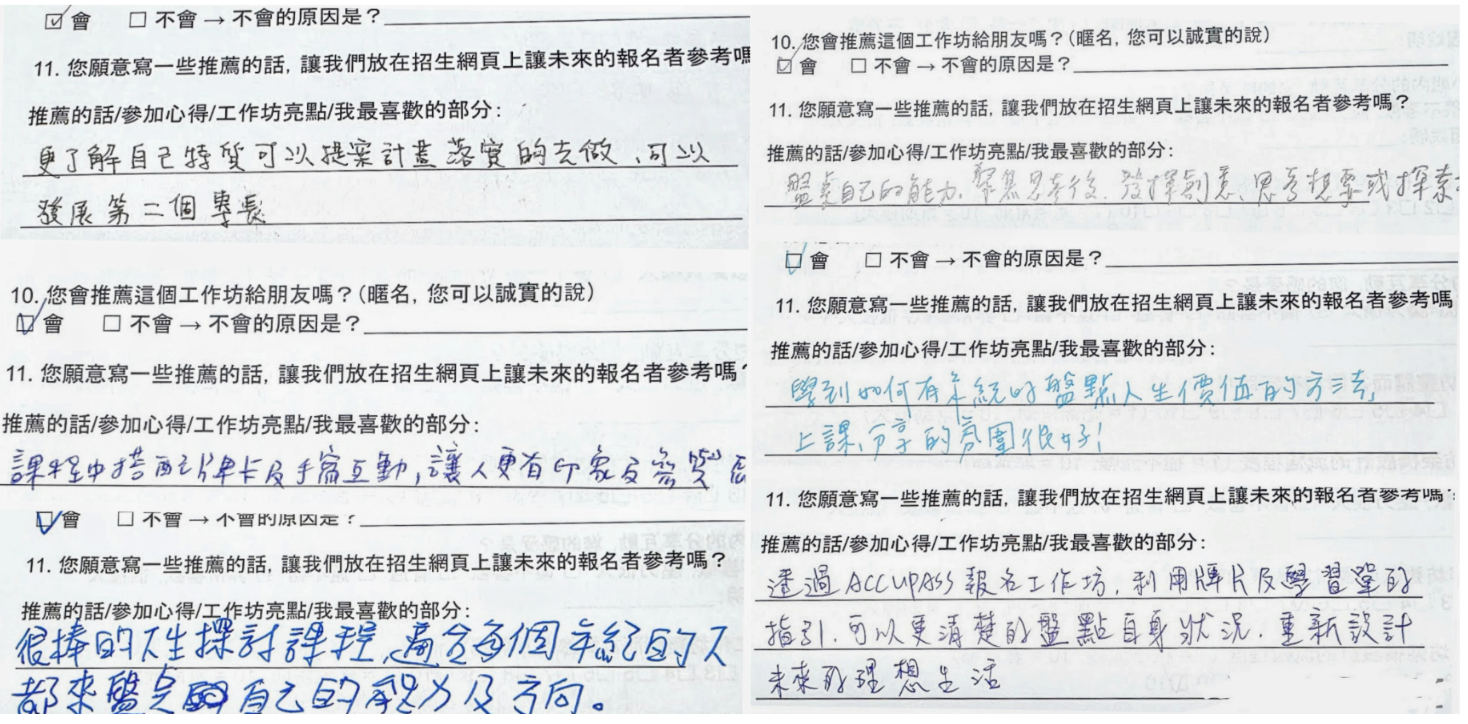 ☑ 會 □ 不會 → 不會的原因是？
11. 您願意寫一些推薦的話, 讓我們放在招生網頁上讓未來的報名者參考嗎
推薦的話/參加心得/工作坊亮點/我最喜歡的部分:
更了解自己特質可以提案計畫落實的去做、可以
發展第二個專長
10. 您會推薦這個工作坊給朋友嗎？(匿名, 您可以誠實的說)
☑ 會 □ 不會 → 不會的原因是？
11. 您願意寫一些推薦的話, 讓我們放在招生網頁上讓未來的報名者參考嗎？
推薦的話/參加心得/工作坊亮點/我最喜歡的部分:
課程中搭配牌卡及手寫互動，讓人更有印象及
☑ 會 □ 不會 → 不會的原因是？
11. 您願意寫一些推薦的話, 讓我們放在招生網頁上讓未來的報名者參考嗎？
推薦的話/參加心得/工作坊亮點/我最喜歡的部分:
很棒的人生探討課程,適合每個年紀的人
都來盤點自己的能力及方向。
10. 您會推薦這個工作坊給朋友嗎？(匿名, 您可以誠實的說)
☑ 會 □ 不會 → 不會的原因是？
11. 您願意寫一些推薦的話, 讓我們放在招生網頁上讓未來的報名者參考嗎？
推薦的話/參加心得/工作坊亮點/我最喜歡的部分:
盤點自己的能力、聚焦思考後、發揮創意、思考想要或探索
☑ 會 □ 不會 → 不會的原因是？
11. 您願意寫一些推薦的話, 讓我們放在招生網頁上讓未來的報名者參考嗎
推薦的話/參加心得/工作坊亮點/我最喜歡的部分:
學到如何有系統的盤點人生價值的方法,
上課、分享的氛圍很好!
11. 您願意寫一些推薦的話, 讓我們放在招生網頁上讓未來的報名者參考嗎？
推薦的話/參加心得/工作坊亮點/我最喜歡的部分:
透過 ACCUPASS 報名工作坊, 利用牌片及學習單的
指引, 可以更清楚的盤點自身狀況. 重新設計
未來的理想生活